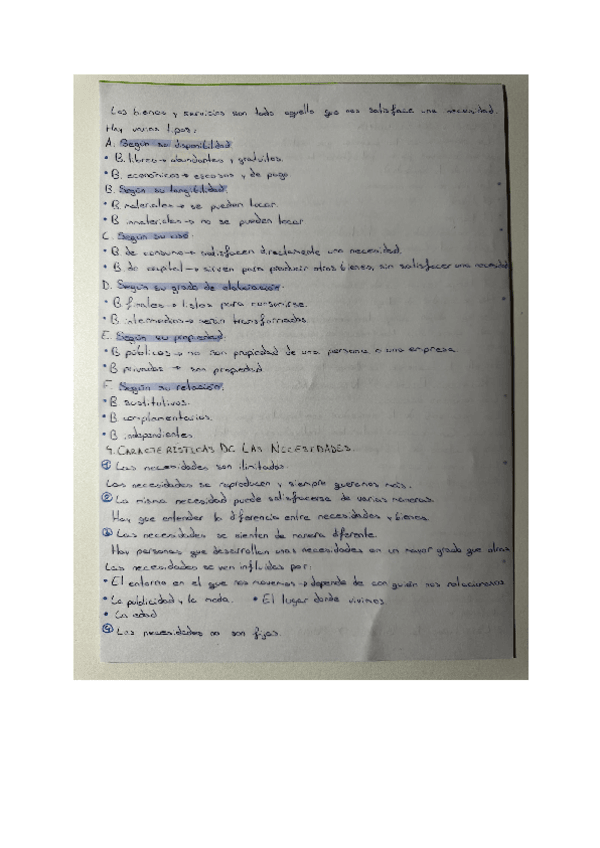 Los bienes y servicios son todo aquello que nos satisface una necesidad.
Hay varios tipos:
A. Según su disponibilidad
• B. libres → abundantes y gratuitos.
• B. económicos → escasos y de pago
B. Según su tangibilidad.
• B. materiales → se pueden tocar.
• B. inmateriales → no se pueden tocar
C. Según su uso.
• B. de consumo → satisfacen directamente una necesidad.
• B. de capital → sirven para producir otros bienes, sin satisfacer una necesidad
D. Según su grado de elaboración.
• B. finales → listos para consumirse.
• B. intermedios → serán transformados.
E. Según su propiedad.
• B. públicos → no son propiedad de una persona o una empresa
• B. privados → son propiedad
F. Según su relación.
• B. sustitutivos.
• B. complementarios.
• B. independientes
4. CARACTERÍSTICAS DE LAS NECESIDADES.
① Las necesidades son ilimitadas.
Las necesidades se reproducen y siempre queremos más.
② La misma necesidad puede satisfacerse de varias maneras.
Hay que entender la diferencia entre necesidades y bienes
③ Las necesidades se sienten de manera diferente.
Hay personas que desarrollan unas necesidades en un mayor grado que otras
Las necesidades se ven influidas por:
• El entorno en el que nos movemos → depende de con quién nos relacionamos
• La publicidad y la moda. • El lugar donde vivimos
• La edad
④ Las necesidades no son fijas.